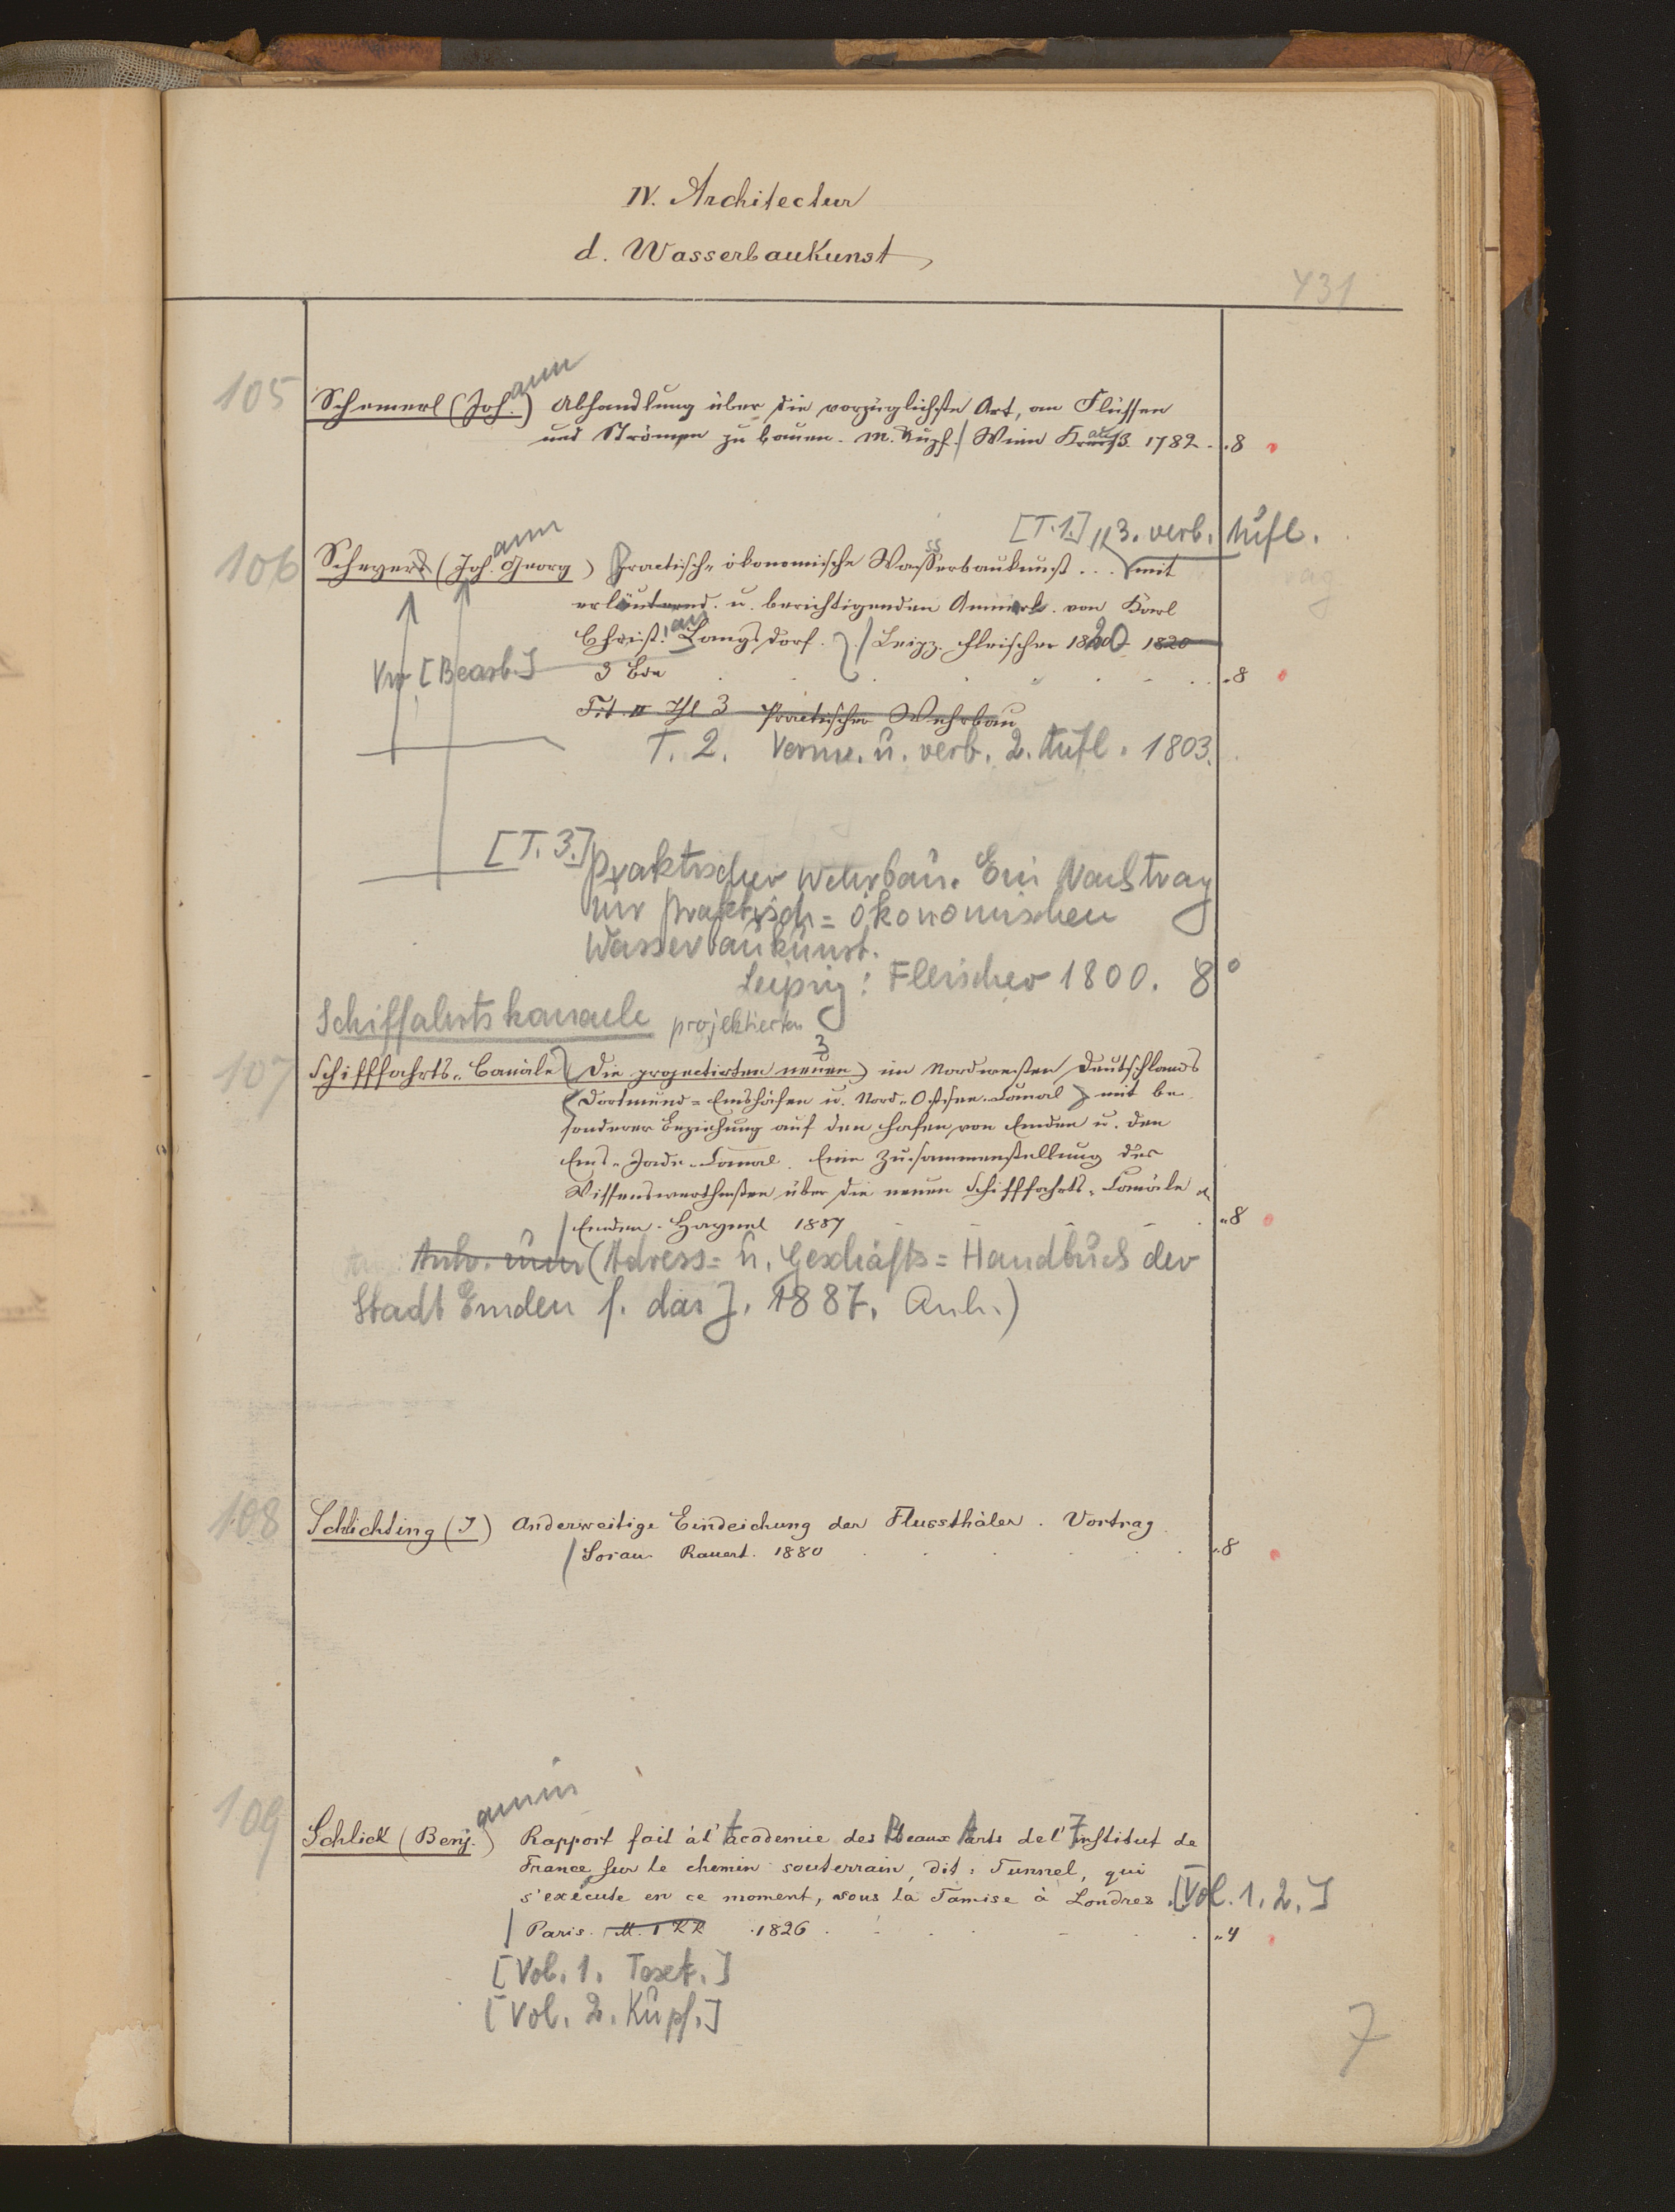 IV. Architectur
d. Wasserbaukunst
431
105
Schemerl (Joh.ann) Abhandlung über die vorzüglichste Art, an Flüssen
und Strömen zu bauen. M. Kupf. / Wien 1782 . „8
[T. 1.] 3. verb. Aufl.
106
Scheyer (Joh.ann Georg) Practisch-ökonomische Wasserbaukunst ... mit
erläuternd. u. berichtigenden Anmerk. von Karl
Christ.ian Langsdorf. / Leipz. Fleischer 1820 1820
[Bearb.] 3 Bde „8
Tit. Thl 3 Practischer Wehrbau
T. 2. Verm. u. verb. 2. Aufl. 1803.
[T. 3.] Praktischer Wehrbau. Ein Nachtrag
zur praktisch-ökonomischen
Wasserbaukunst.
Leipzig: Fleischer 1800. 8°
Schiffahrtskanaele projektierten
3
107
Schifffahrts-Canäle (Die projectirten neuen) im Nordwesten Deutschlands
(Dortmund-Emshäfen u. Nord-Ostsee-Canal) mit be
sonderer Beziehung auf den Hafen von Emden u. den
Ems-Jade-Canal. Eine Zusammenstellung des
Wissenswerthesten über die neuen Schifffahrts-Canäle
/ Emden. Haynel 1887 „8
Anh. zum (Adress- u. Geschäfts-Handbuch der
Stadt Emden f. das J. 1887. Anh.)
108
Schlichting (J) Anderweitige Eindeichung der Flussthäler. Vortrag
/ Sorau Rauert. 1880 „8
109
Schlick (Benj.amin) Rapport fait à l'Academie des Beaux Arts de l'Institut de
France sur le chemin souterrain, dit: Tunnel, qui
s'exécute en ce moment, sous la Tamise à Londres. [Vol. 1. 2.]
/ Paris. 1826 „4
[Vol. 1. Text.]
[Vol. 2. Kupf.]
7